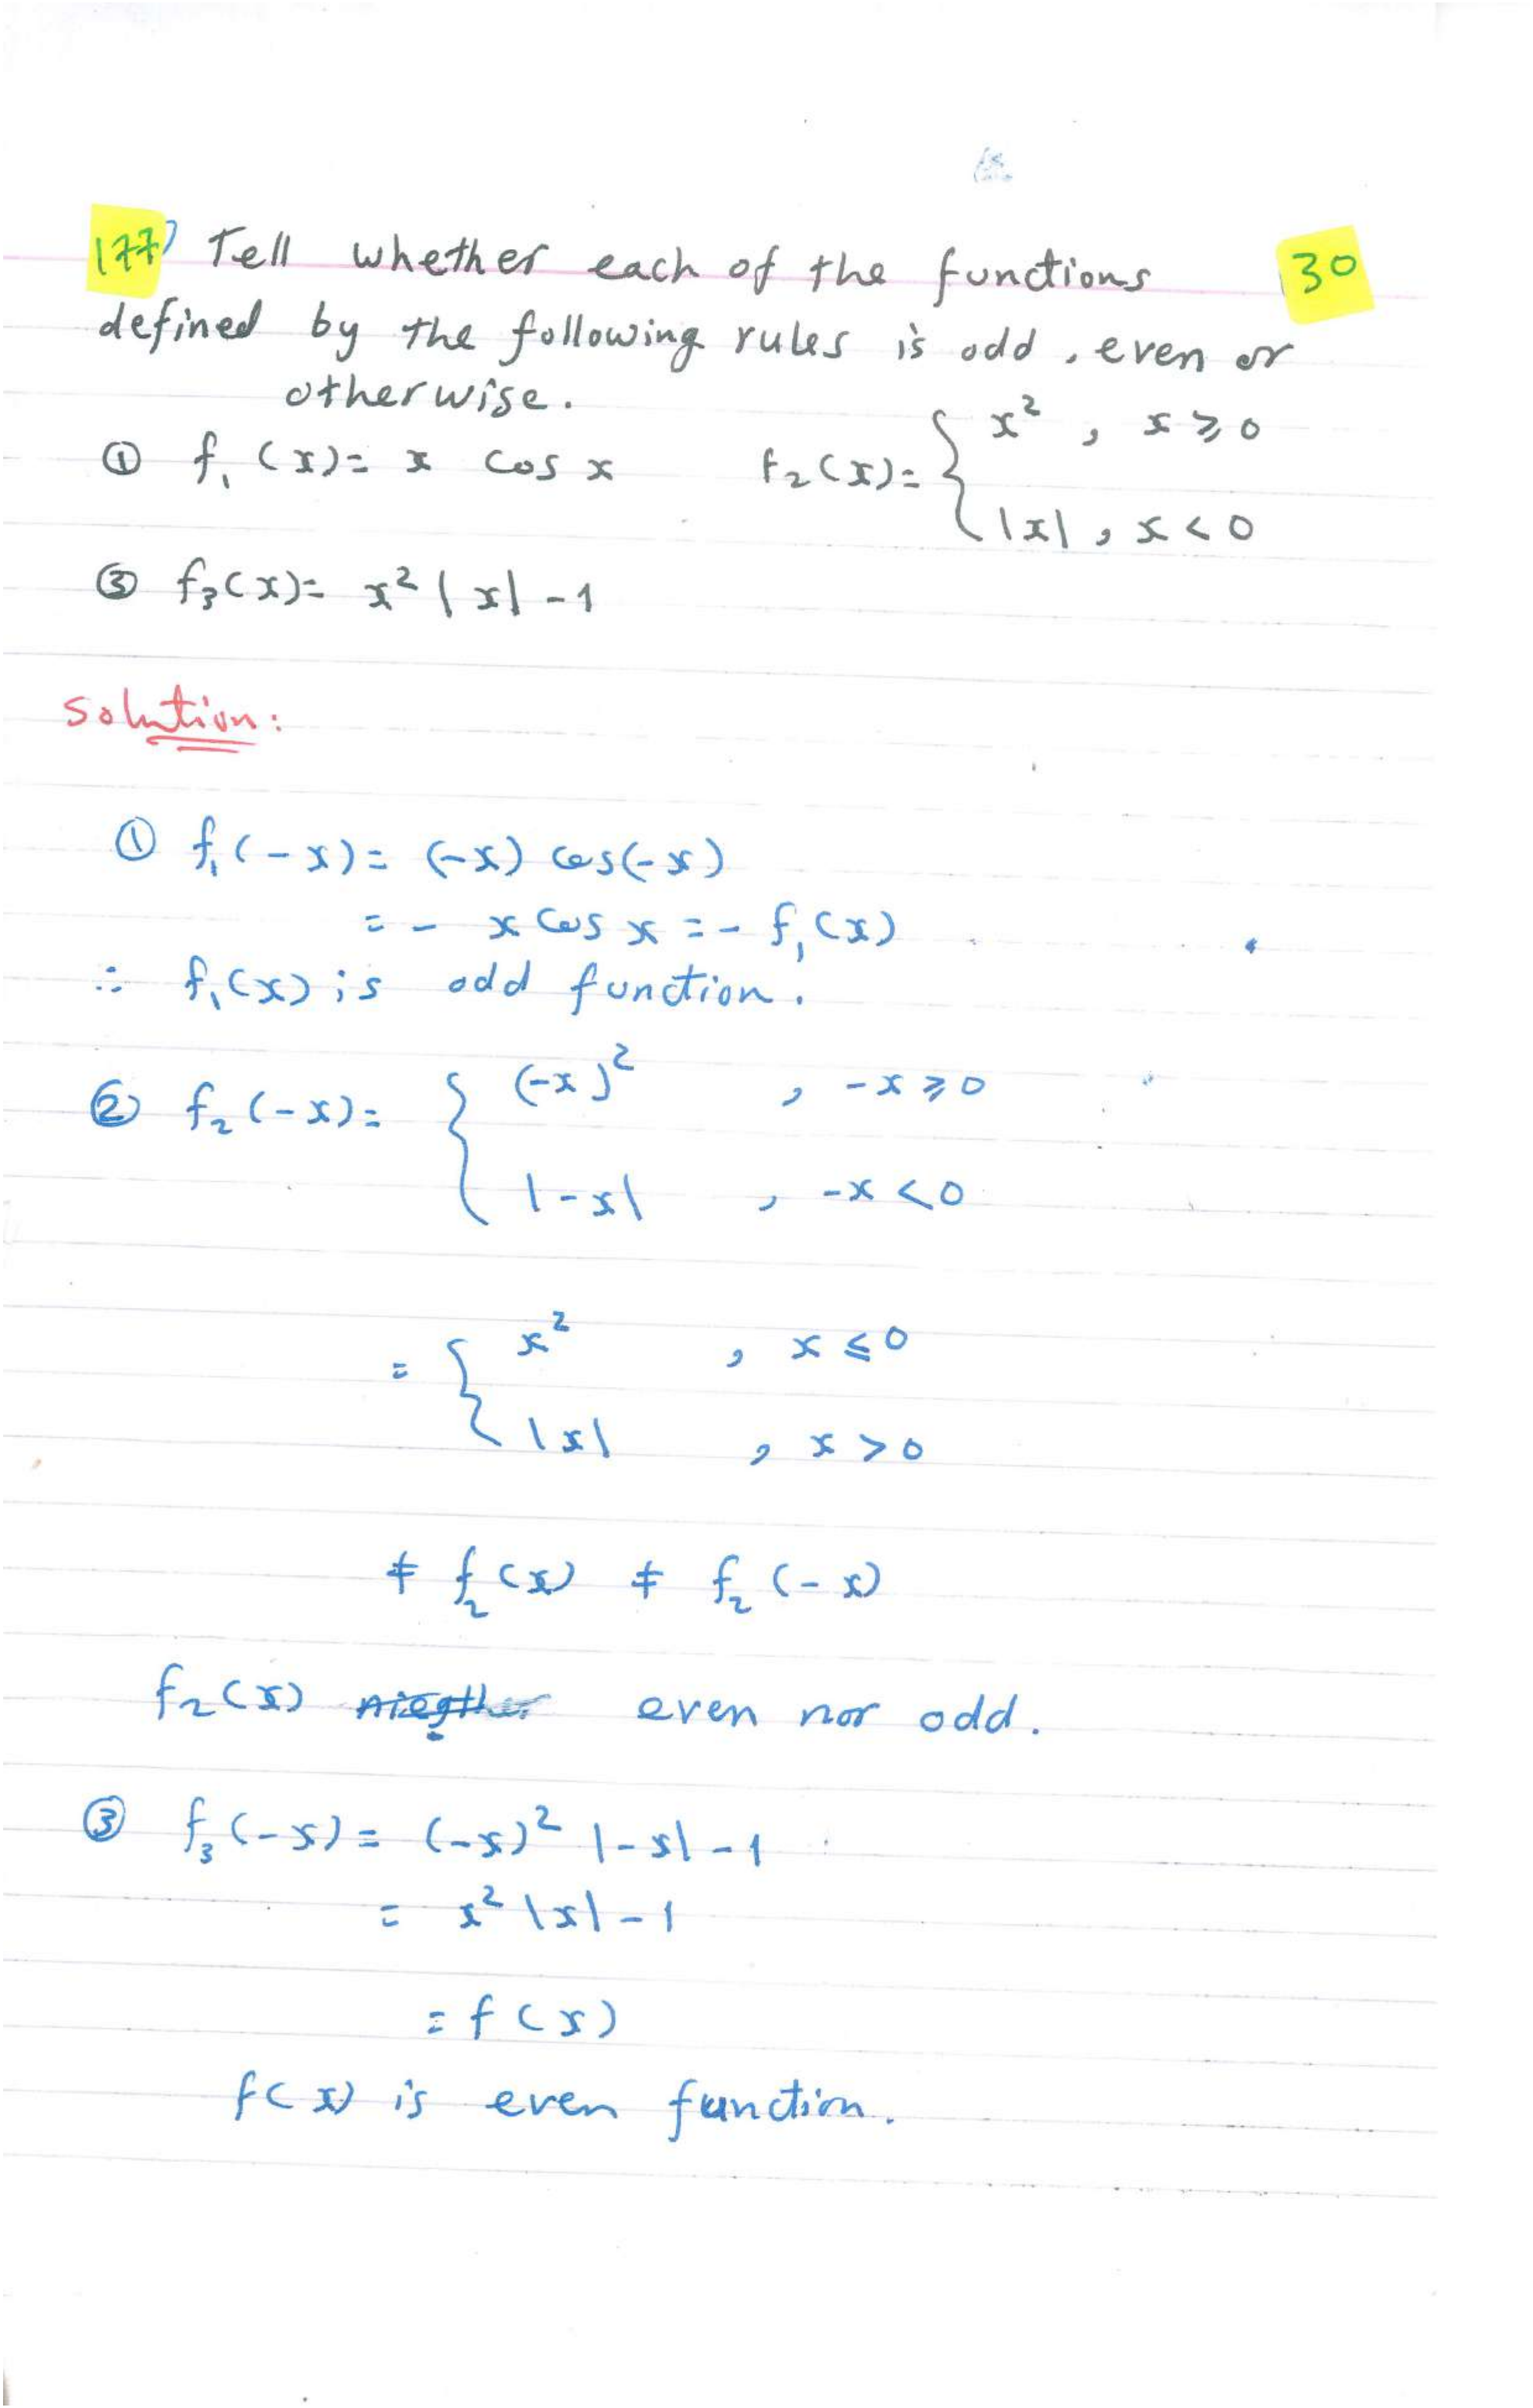 177) Tell whether each of the functions 30
defined by the following rules is odd, even or
otherwise.
① f₁(x)= x cos x f₂(x)= { x² , x ⩾ 0
|x| , x < 0
③ f₃(x)= x² |x| - 1
solution:
① f₁(-x)= (-x) cos(-x)
= - x cos x = - f₁(x)
∴ f₁(x) is odd function.
② f₂(-x)= { (-x)² , -x ⩾ 0
|-x| , -x < 0
= { x² , x ⩽ 0
|x| , x > 0
≠ f₂(x) ≠ f₂(-x)
f₂(x) niegther even nor odd.
③ f₃(-x)= (-x)² |-x| - 1
= x² |x| - 1
= f(x)
f(x) is even function.